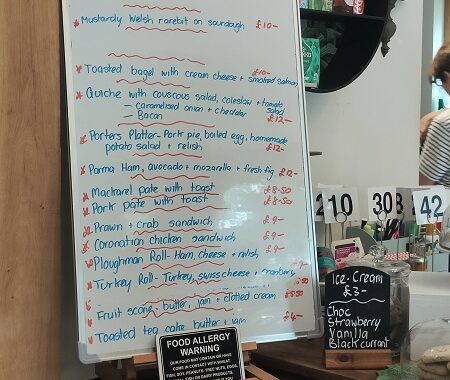 Mustardy Welsh rarebit on sourdough £10-
Toasted bagel with cream cheese + smoked salmon £10-
Quiche with couscous salad, coleslaw + tomato salad
- Caramelised onion + cheddar
- Bacon £12-
Porters Platter - Pork pie, boiled egg, homemade
potato salad + relish £12-
Parma Ham, avocado + mozarella + fresh fig £12-
Mackarel pate with toast £8-50
Pork pate with toast £8-50
Prawn + Crab sandwich £9-
Coronation chicken sandwich £9-
Ploughman Roll - Ham, cheese + relish,
Turkey Roll - Turkey, swiss cheese + cranberry
Fruit scone, butter, jam + clotted cream
Toasted tea cake butter + jam £4-
FOOD ALLERGY
WARNING
OUR FOOD MAY CONTAIN OR HAVE
COME IN CONTACT WITH WHEAT,
EGG, SOY, PEANUTS, TREE NUTS, EGGS,
210
30
8
42
Ice-Cream
£3-
Choc
Strawberry
Vanilla
Blackcurrant